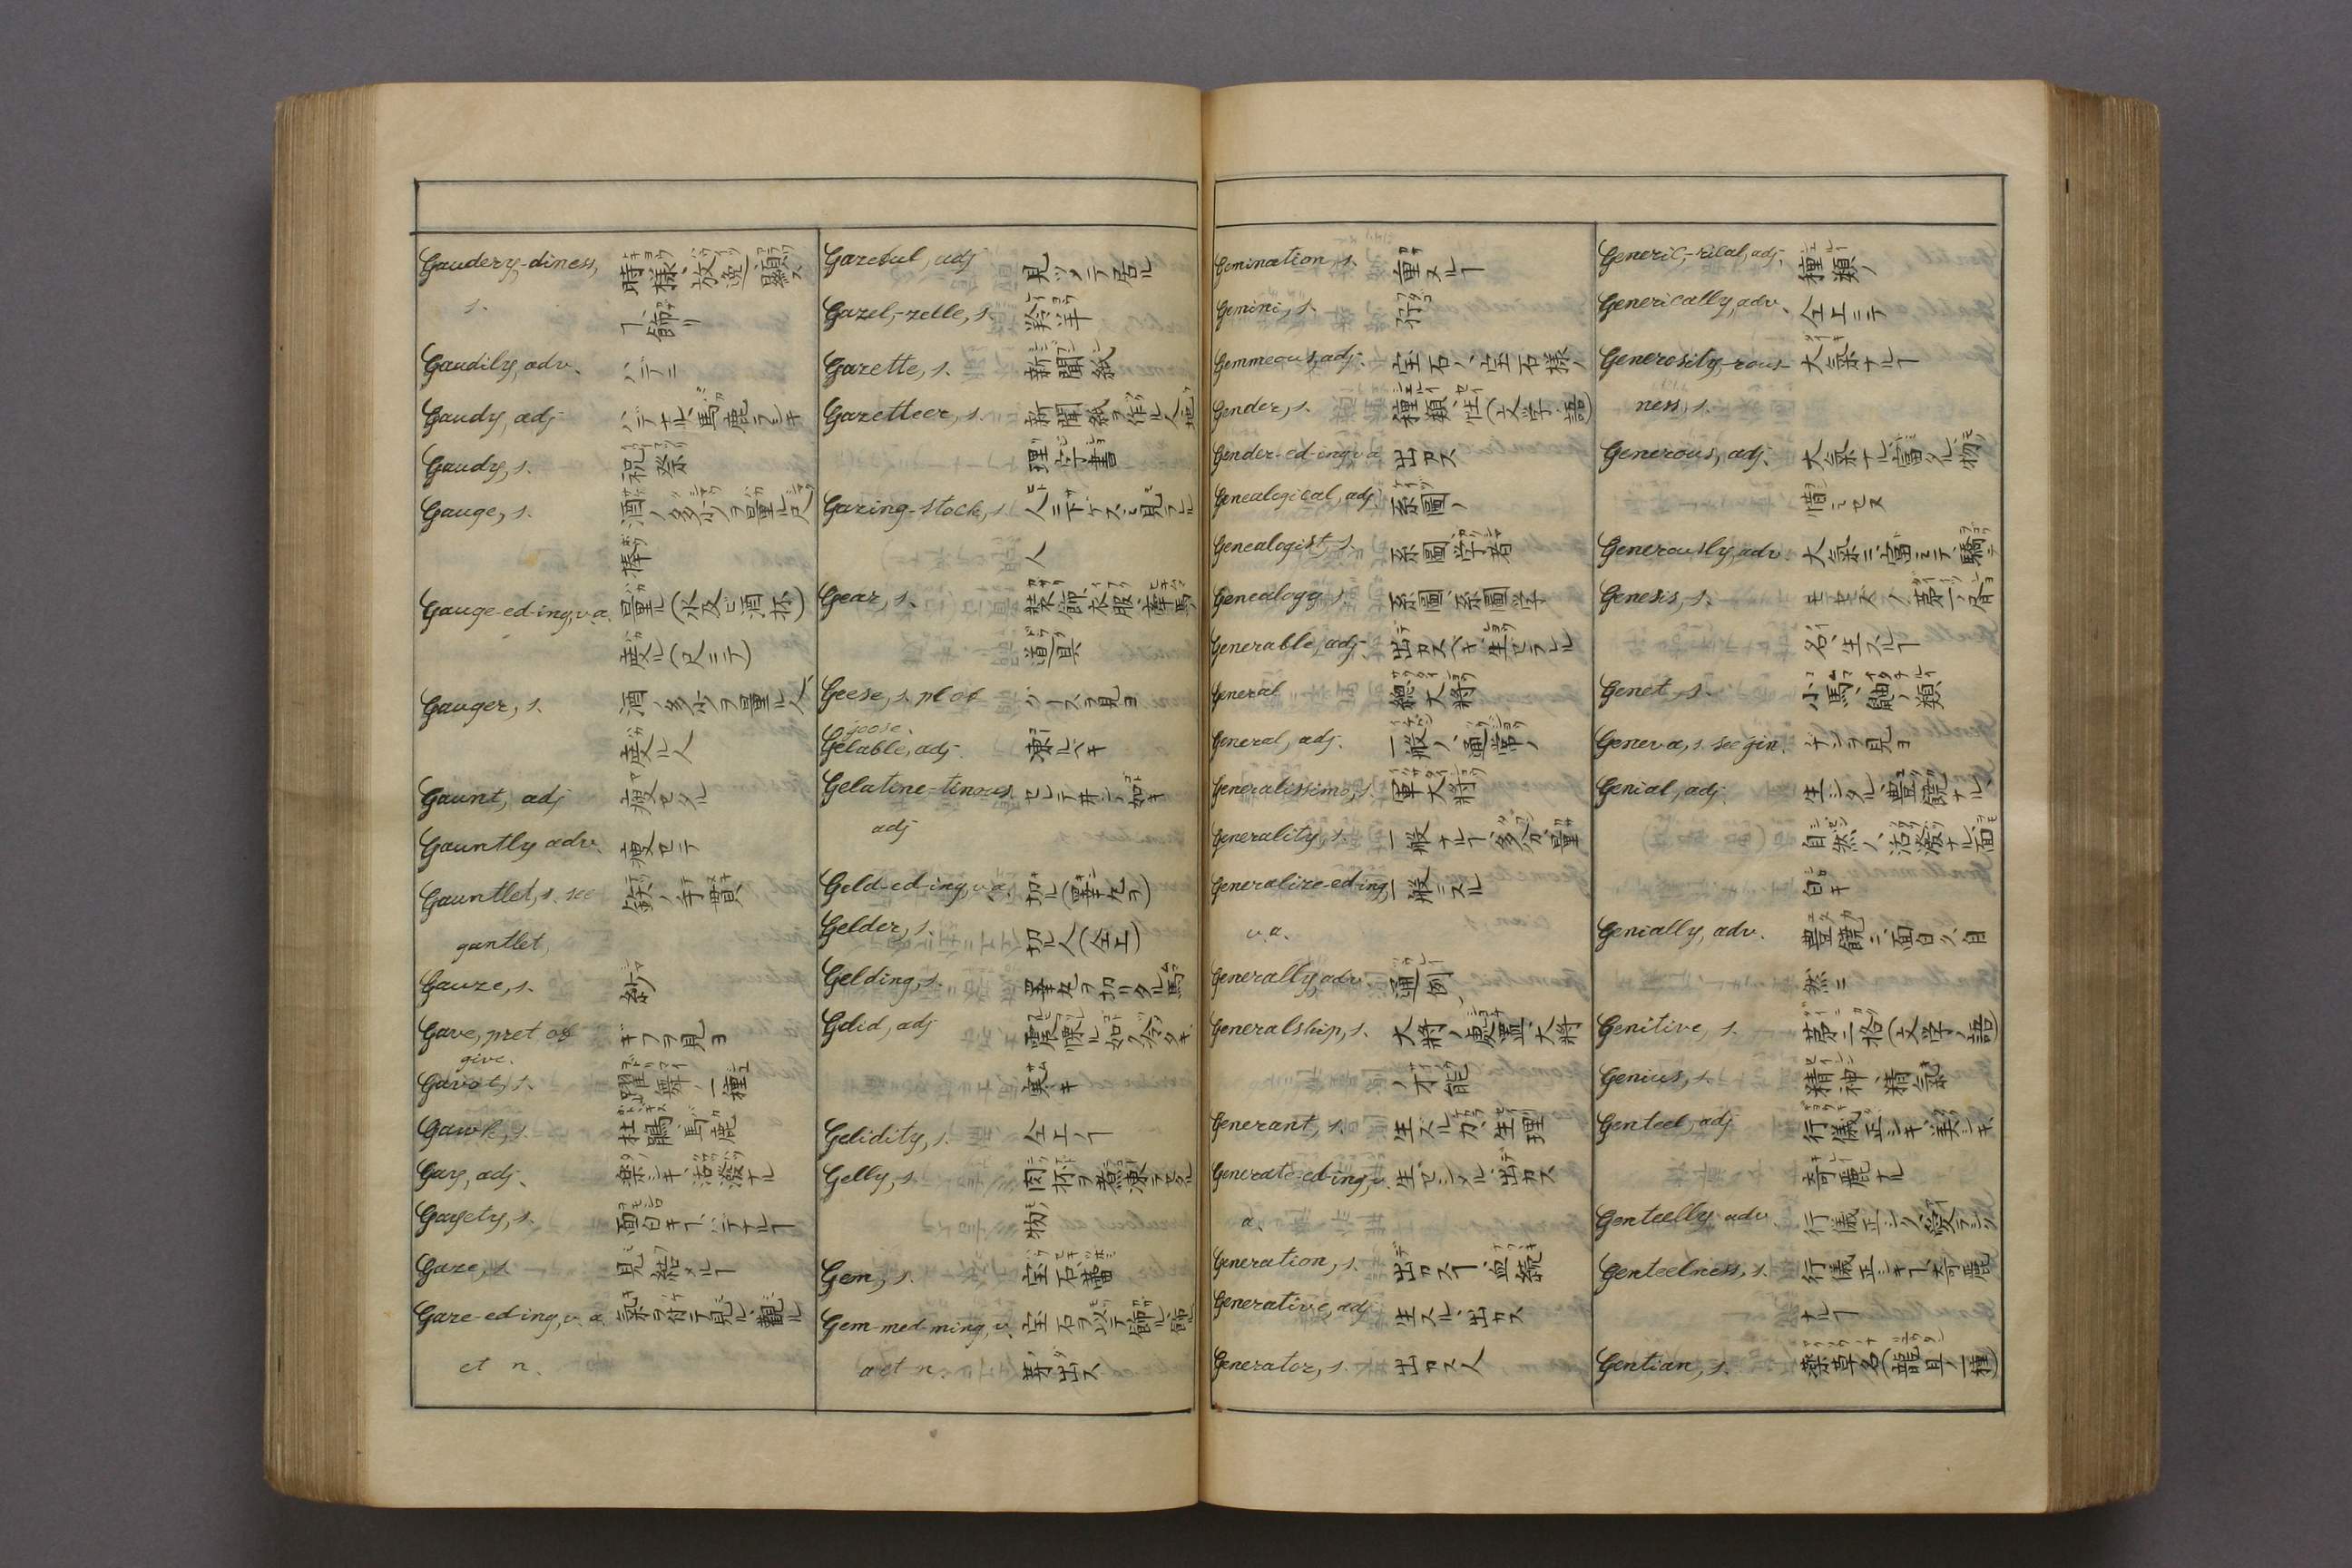 Gaudery,-diness, 時様、放逸、顕ス
s. ヿ、飾リ
Gaudily, adv. ハデニ
Gaudy, adj ハデナル、馬鹿ラシキ
Gaudy, s. 祝祭
Gauge, s. 酒ノ多少ヲ量ル尺
棒
Gauge-ed-ing, v.a. 量ル(水及ビ酒杯)
度ル(尺ニテ)
Gauger, s. 酒ノ多少ヲ量ル人、
度ル人
Gaunt, adj 痩セタル
Gauntly adv. 痩セテ
Gauntlet, s. see 鉄ノ手貫
gantlet,
Gauze, s. 紗
Gave, pret of ギフヲ見ヨ
give.
Gavot, s. 躍舞ノ一種
Gawk, s. 杜鵑、馬鹿
Gay, adj. 楽シキ、活潑ナル
Gayety, s. 面白キヿ、ハデナルヿ
Gaze, s. 見詰メルヿ
Gaze-ed-ing, v. a. 氣ヲ付テ見ル、觀ル
et n.
Gazeful, adj 見ツメテ居ル
Gazel,-zelle, s. 羚羊
Gazette, s. 新聞紙
Gazetteer, s. 新聞紙ヲ作ル人、地
理字書
Gazing-stock, s 人ニ下ゲスミ見ラル
人
Gear, s. 装飾、衣服、牽馬ノ
道具
Geese, s. pl of グースヲ見ヨ
goose.
Gelable, adj. 凍ルベキ
Gelatine-tinous. セレテ井ンノ如キ
adj
Geld-ed-ing, v.a. 切ル(睾丸ヲ)
Gelder, s. 切ル人(仝上)
Gelding, s. 睾丸ヲ切リタル馬
Gelid, adj 震慄ル如ク冷タキ、
寒キ
Gelidity, s. 仝上ノヿ
Gelly, s. 肉杯ヲ煮凍ラセタル
物
Gem, s. 宝石、蕾
Gem-med-ming, v. 宝石ヲ以テ飾ル、飾ル
a et n. 芽出ス
Gemination, s. 重ヌルヿ
Gemini, s.
Gemmeous, adj. 宝石ノ、宝石様ノ
Gender, s. 種類、性(文学ノ語)
Gender-ed-ing v a 出カス
Genealogical, adj. 系圖ノ
Genealogist, s. 系圖学者
Genealogy, s. 系圖、系圖学
Generable, adj. 出カスベキ、生ゼラルル
General 總大將
General, adj. 一般ノ、通常ノ
Generalissimo, s. 軍大將
Generality, s. 一般ナルヿ、多分、量
Generalize-ed-ing, 一般ニスル
v a.
Generally, adv. 通例、
Generalship, s. 大將ノ處置、大將
ノ才能
Generant, s. 生ズル力、生理
Generate-ed-ing, v. 生ゼシメル、出カス
a.
Generation, s. 出カスヿ、血統
Generative, adj 生スル、出カス
Generator, s. 出カス人
Generic,-rical, adj. 種類ノ
Generically, adv. 仝上ニテ
Generosity,-rous- 大氣ナルヿ
ness, s.
Generous, adj. 大氣ナル、富タル、物
惜ミセヌ
Generously, adv. 大氣ニ、富ミテ、驕テ
Genesis, s. モセスノ第一ノ書
名、生スルヿ
Genet, s. 小馬、鼬ノ類
Geneva, s. see gin. ヂンヲ見ヨ
Genial, adj. 生シタル、豊饒ナル、
自然ノ、活潑ナル、面
白キ
Genially, adv. 豊饒ニ、面白ク、自
然ニ
Genitive, s. 第二格(文学ノ語)
Genius, s. 精神、精氣
Genteel, adj 行儀正シキ、美シキ、
奇麗ナル
Genteelly adv. 行儀正シク、愛ラシク
Genteelness, s. 行儀正シキヿ、奇麗
ナルヿ
Gentian, s. 藥草名(龍胆ノ一種)